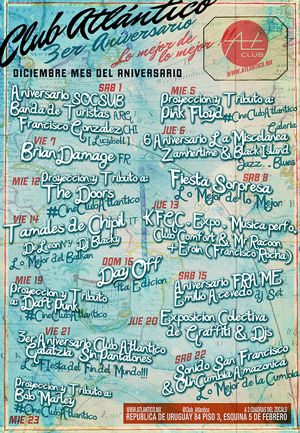 Club Atlántico
3er Aniversario
Lo mejor de
lo mejor !!!
CLUB
WWW.ATLANTICO.MX
DICIEMBRE MES DEL ANIVERSARIO
SAB 1
Aniversario SOCSUB
Banda de Turistas ARG
Francisco González CHI
MIE 5
Proyeccion y Tributo a:
Pink Floyd
#CineClubAtlantico
Galería
JUE 6
6 Aniversario La Miscelanea
Zambertime & Black Island
Jazz.. Blues
VIE 7
Brian Damage FR
SAB 8
Fiesta Sorpresa
Lo Mejor de lo Mejor
MIE 12
Proyeccion y Tributo a:
The Doors
#CineClubAtlantico
JUE 13
KFGC Expo. Musica perfo.
Club Comfort & Mr Racoon
+ Eron (Francisco Rocha)
VIE 14
Tamales de Chipil
Dr LeonNY Dj Blacky
Lo Mejor del Balkan
DOM 16
Day Off
4ta Edicion
SAB 15
Aniversario FRAME
Emilio Acevedo dj Set
MIE 19
Proyección y Tributo
a: Daft Punk
#CineClubAtlantico
JUE 20
Exposición Colectiva
de Graffiti & Djs
VIE 21
3er Aniversario Club Atlántico
Galatzia Sin Pantalones
La Fiesta del Fin del Mundo!!!
SAB 22
Sonido San Francisco
& Ali Gua Gua Amazonica
Lo Mejor de la Cumbia
Proyección y Tributo a:
Bob Marley
#CineClubAtlantico
MIE 23
WWW.ATLANTICO.MX
@Club_Atlantico
A 2 CUADRAS DEL ZOCALO
REPUBLICA DE URUGUAY 84 PISO 3, ESQUINA 5 DE FEBRERO